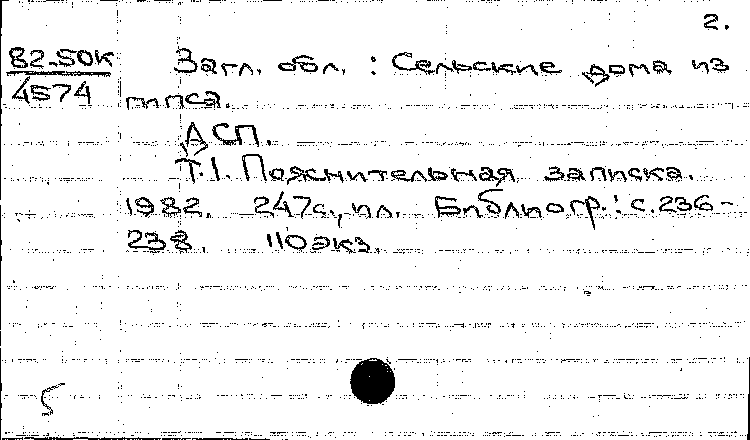 2.
82-50К
4574
Загл. обл. : Сельские дома из
гипса.
ДСП.
Т.1. Пояснительная записка.
1982. 247с., ил. Библиогр.: с.236-
238. 110экз.
5